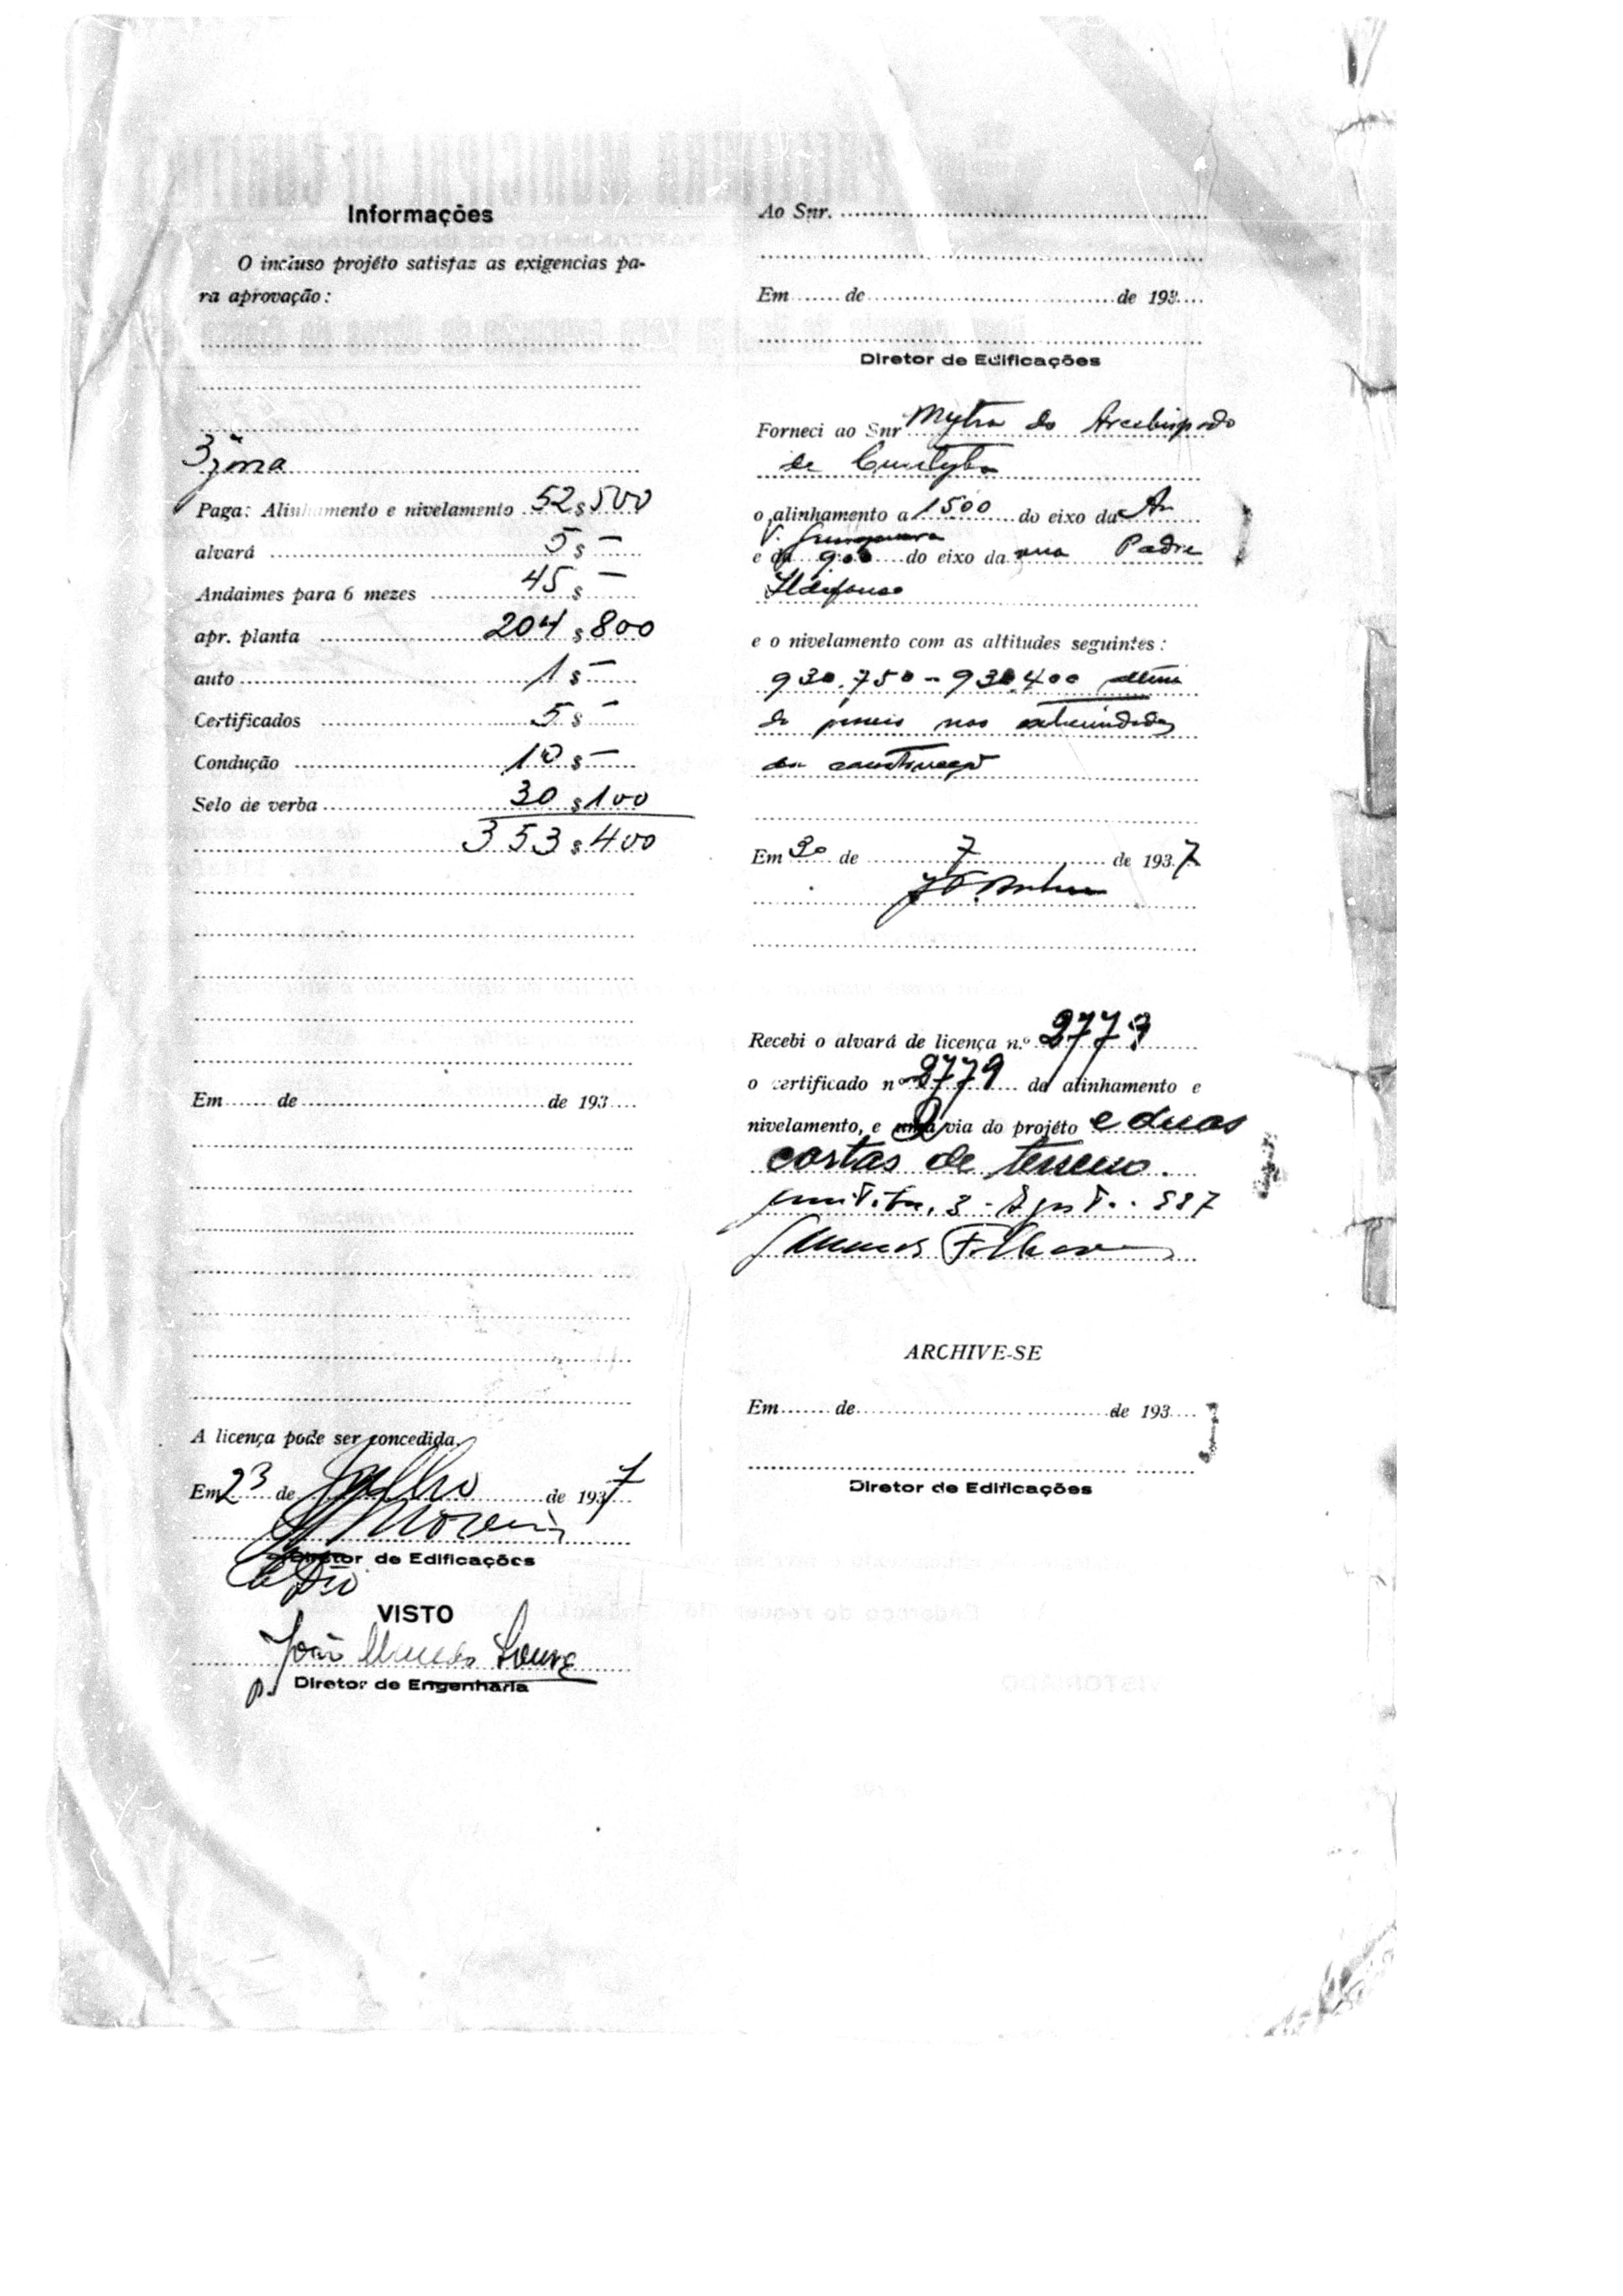 Informações
O incluso projéto satisfaz as exigencias pa-
ra aprovação:
3ª zona
Paga: Alinhamento e nivelamento 52$500
alvará 5$—
Andaimes para 6 mezes 45$—
apr. planta 204$800
auto 1$—
Certificados 5$—
Condução 10$—
Selo de verba 30$100
353$400
Em de de 193
A licença pode ser concedida.
Em 23 de Julho de 1937
Diretor de Edificações
VISTO
João Souza
p. Diretor de Engenharia
Ao Snr.
Em de de 193
Diretor de Edificações
Forneci ao Snr Mytra do Arcebispado
de Curityba
o alinhamento a 1500 do eixo da Av
V. Guarapuava
e 900 do eixo da rua Padre
Ildefonso
e o nivelamento com as altitudes seguintes:
930.750 - 930.400
nas extremidades
da construcção
Em 30 de 7 de 1937
Recebi o alvará de licença n.º
o certificado nº 2779 da alinhamento e
nivelamento, e 2 via do projéto e duas
cartas de terreno.
ARCHIVE-SE
Em de de 193
Diretor de Edificações